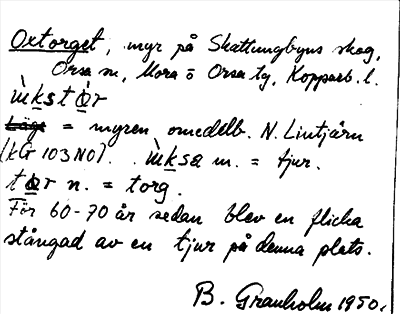 Oxtorget, myr på Skattungbyns skog,
Orsa sn, Mora o Orsa tg, Kopparb. l.
ùkstòr
Läge = myren omedelb. N. Lintjärn
(kG 103NO). ùksa m. = tjur.
tòr n. = torg.
För 60-70 år sedan blev en flicka
stångad av en tjur på denna plats.
B. Granholm 1950.